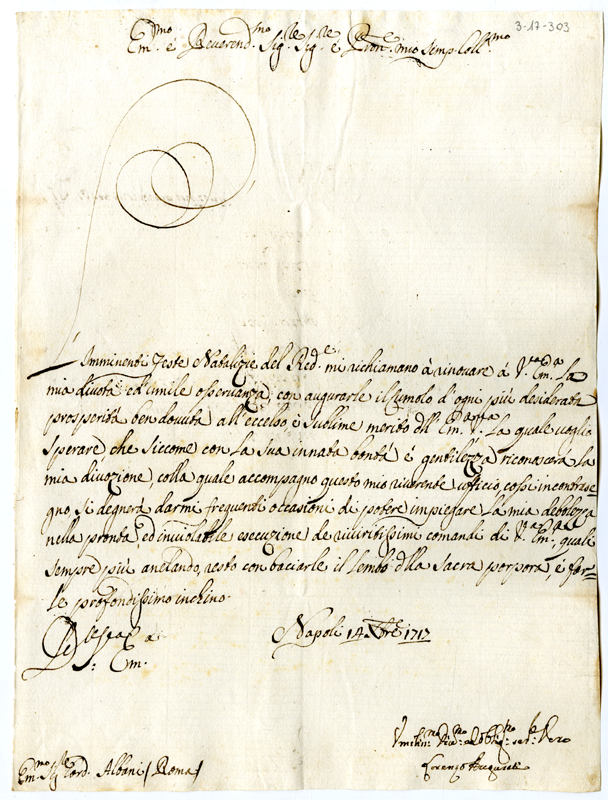 3-17-303
Em.mo e Reverend.mo Sig.re Sig.re e Pron.e mio semp. Coll.mo
L'Imminenti Feste Natalizie del Red.e mi richiamano à rinovare á V.ra Em.za La
mia divota, ed umile osservanza, con augurarle il cumolo d'ogni più desiderata
prosperità ben dovuta all'eccelso è sublime merito dell' Em. V.ra La quale voglio
sperare, che siccome con La sua innata bontà é gentilezza riconoscerá La
mia divozione, colla quale accompagno questo mio riverente ufficio, cossì in contrase=
gno, si degnerà darmi frequenti occasioni di potere impiegare La mia debolezza
nella pronta, ed inviolabile esecuzione de riveritissimi comandi di V.ra Em.za, quali
sempre più anelando, resto con baciarle il lembo d.lla sacra porpora, é far=
le profondissimo inchino.
Em.
Napoli 14 Xbre 1717
Umiliss.mo Div.mo ed Obblig.mo ser.re Vero
Lorenzo
Em.mo Sig.re Card. Albani / Roma /